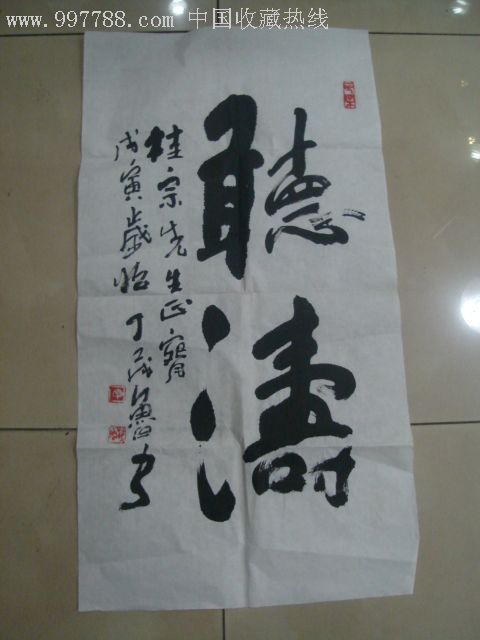 www.997788.com 中国收藏热线
聽濤
桂宗先生正寳
戊寅歲始丁茂魯书